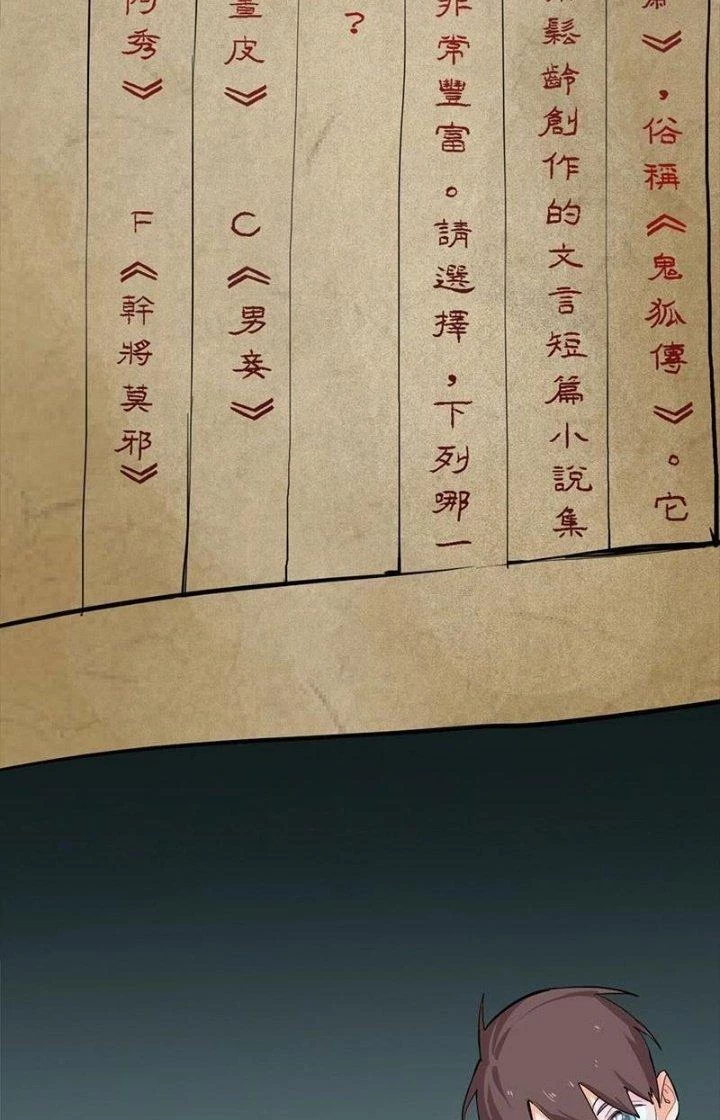 》，俗稱《鬼狐傳》。它
鬆齡創作的文言短篇小說集
非常豐富。請選擇，下列哪一
？
畫皮》 C《男妾》
阿秀》 F《幹將莫邪》